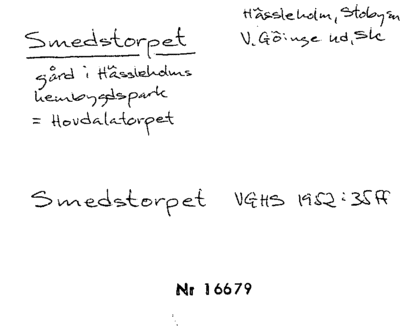 Hässleholm, Stobysn
V. Göinge hd, Sk
Smedstorpet
gård i Hässleholms
hembygdspark
= Hovdalatorpet
Smedstorpet VGHS 1952:35ff
Nr 16679